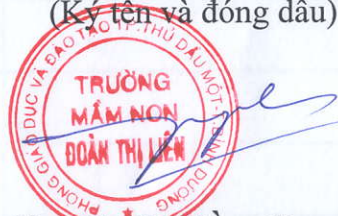 (Ký tên và đóng dấu)
PHÒNG GIÁO DỤC VÀ ĐÀO TẠO TP.THỦ DẦU MỘT-T.BÌNH DƯƠNG
TRƯỜNG
MẦM NON
ĐOÀN THỊ LIÊN